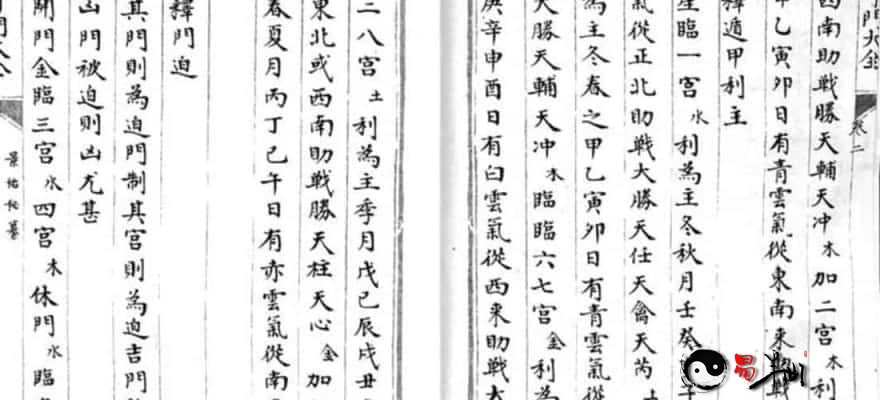 門大全
卷二
西南助戰勝天輔天冲木加二宮木利
甲乙寅卯日有青雲氣從東南來助戰
釋遁甲利主
星臨一宮水利為主冬秋月壬癸
氣從正北助戰大勝天任天禽天芮土
為主冬春之甲乙寅卯日有青雲氣從
大勝天輔天冲木臨臨六七宮金利為
庚辛申酉日有白雲氣從西來助戰大
二八宮土利為主季月戊己辰戌丑
東北或西南助戰勝天柱天心金加
春夏月丙丁巳午日有赤雲氣從南
釋門迫
其門則為迫門制其宮則為迫吉門
凶門被迫則凶尤甚
開門金臨三宮水四宮木休門水臨
門大全
景祐秘
易